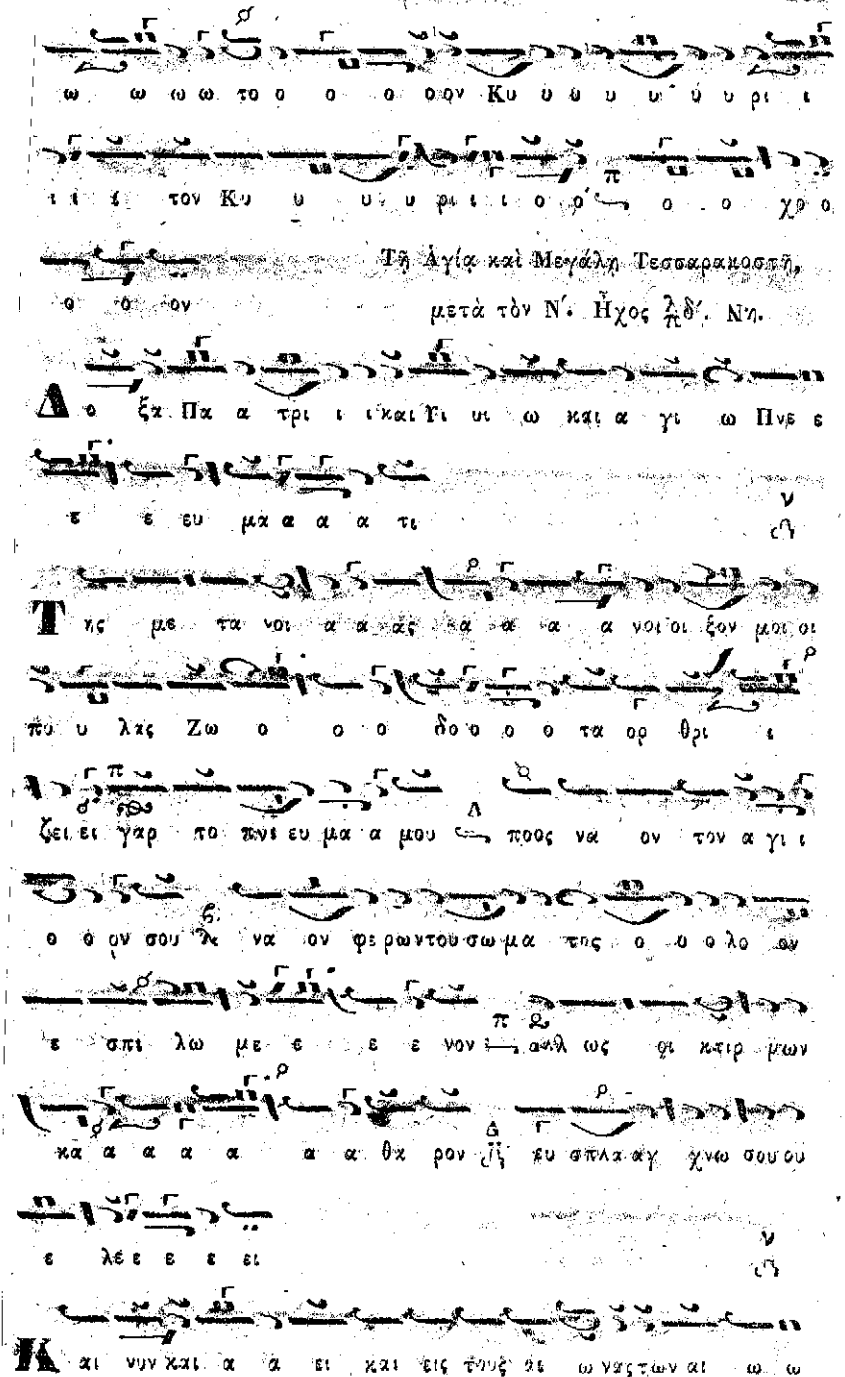 ω ω ω ω το ο ο ο ο ον Κυ υ υ υ υ υ υ ρι ι
ι ι ι τον Κυ υ υ υ ρι ι ι ο ο ο ο χο ο
ο ο ον Τῇ Ἁγίᾳ καὶ Μεγάλῃ Τεσσαρακοστῇ,
μετὰ τὸν Ν΄. Ἦχος λ/π δ΄. Νη.
Δ ο ξα Πα α τρι ι ι και Υι υι ω και α γι ω Πνε ε
ε ε ευ μα α α α τι
Τ ης με τα νοι α α ας α α α α νοι οι ξον μοι οι
πυ υ λας Ζω ο ο ο δο ο ο ο ο τα ορ θρι ι
ζει ει γαρ το πνε ευ μα α μου προς να ον τον α γι ι
ο ο ον σου να ον φε ρων του σω μα τος ο ο ο λο ον
ε σπι λω με ε ε ε νον αλλ ως οι κτιρ μων
κα α α α α α α θα ρον ευ σπλα αγ χνω σου ου
ε λε ε ε ε ει
Κ αι νυν και α α ει και εις τους αι ω νας των αι ω ω